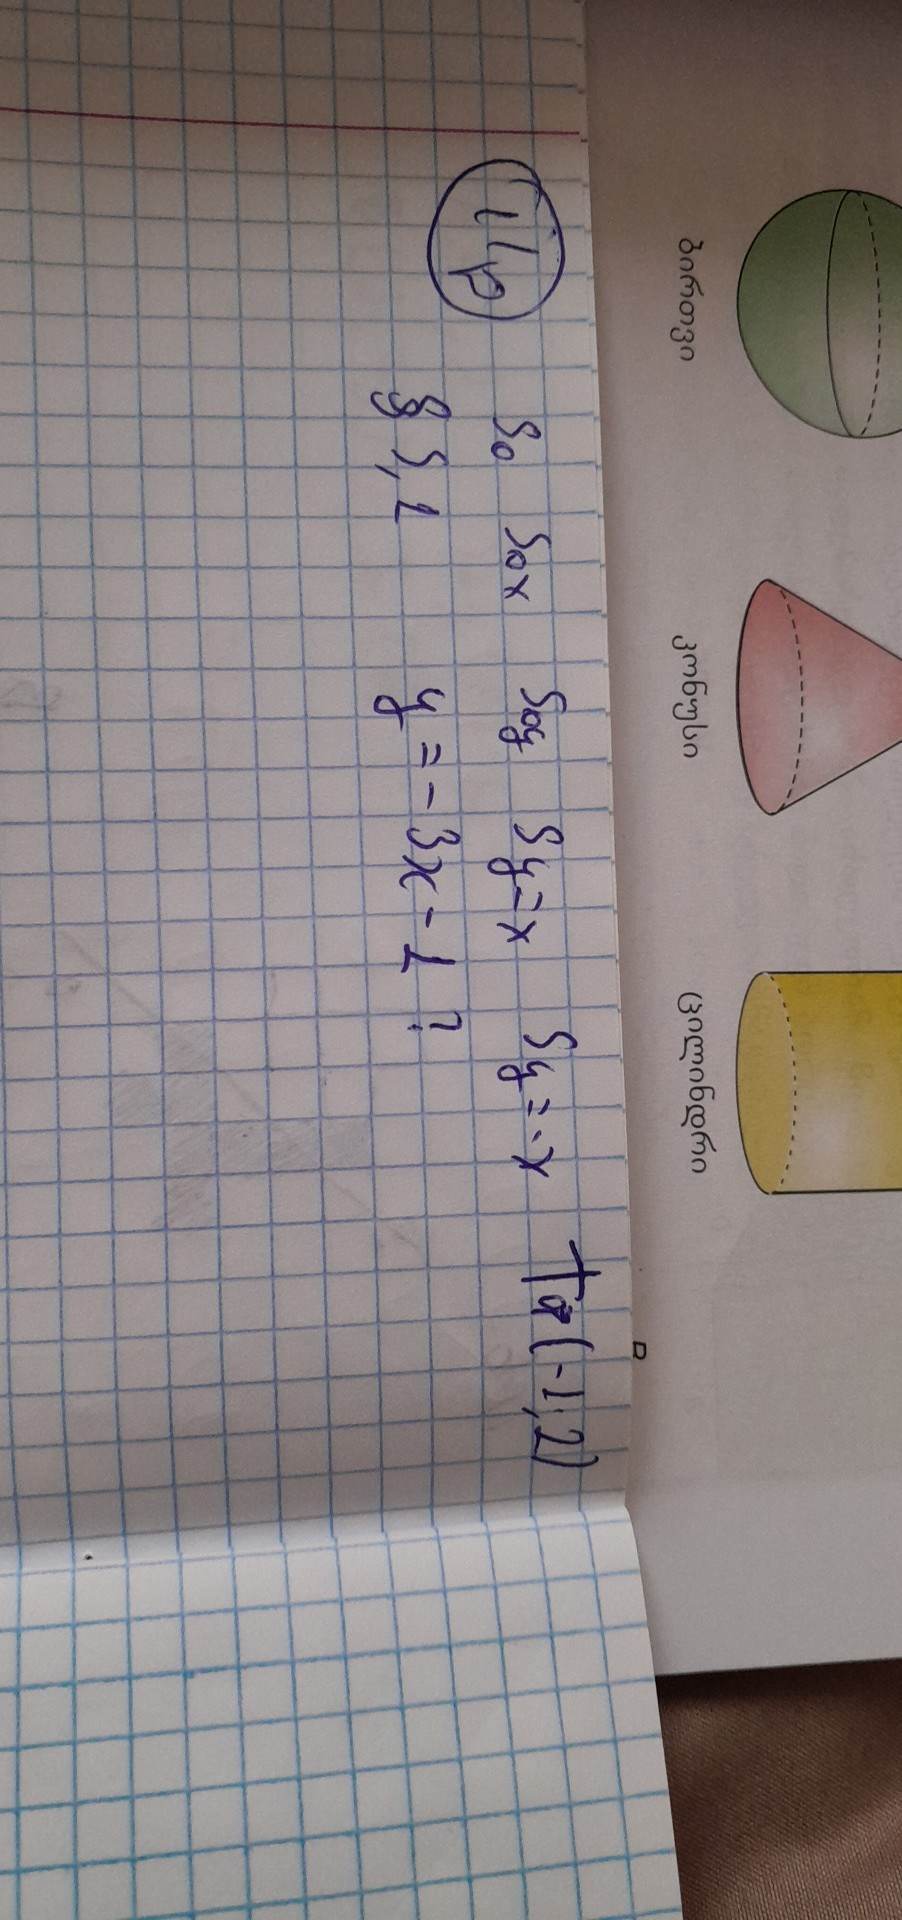 ბირთვი კონუსი ცილინდრი
S₀ S₀ₓ S₀y Sy=x Sy=-x Tā(-1;2)
§ 5,1 y = -3x - 1 ?